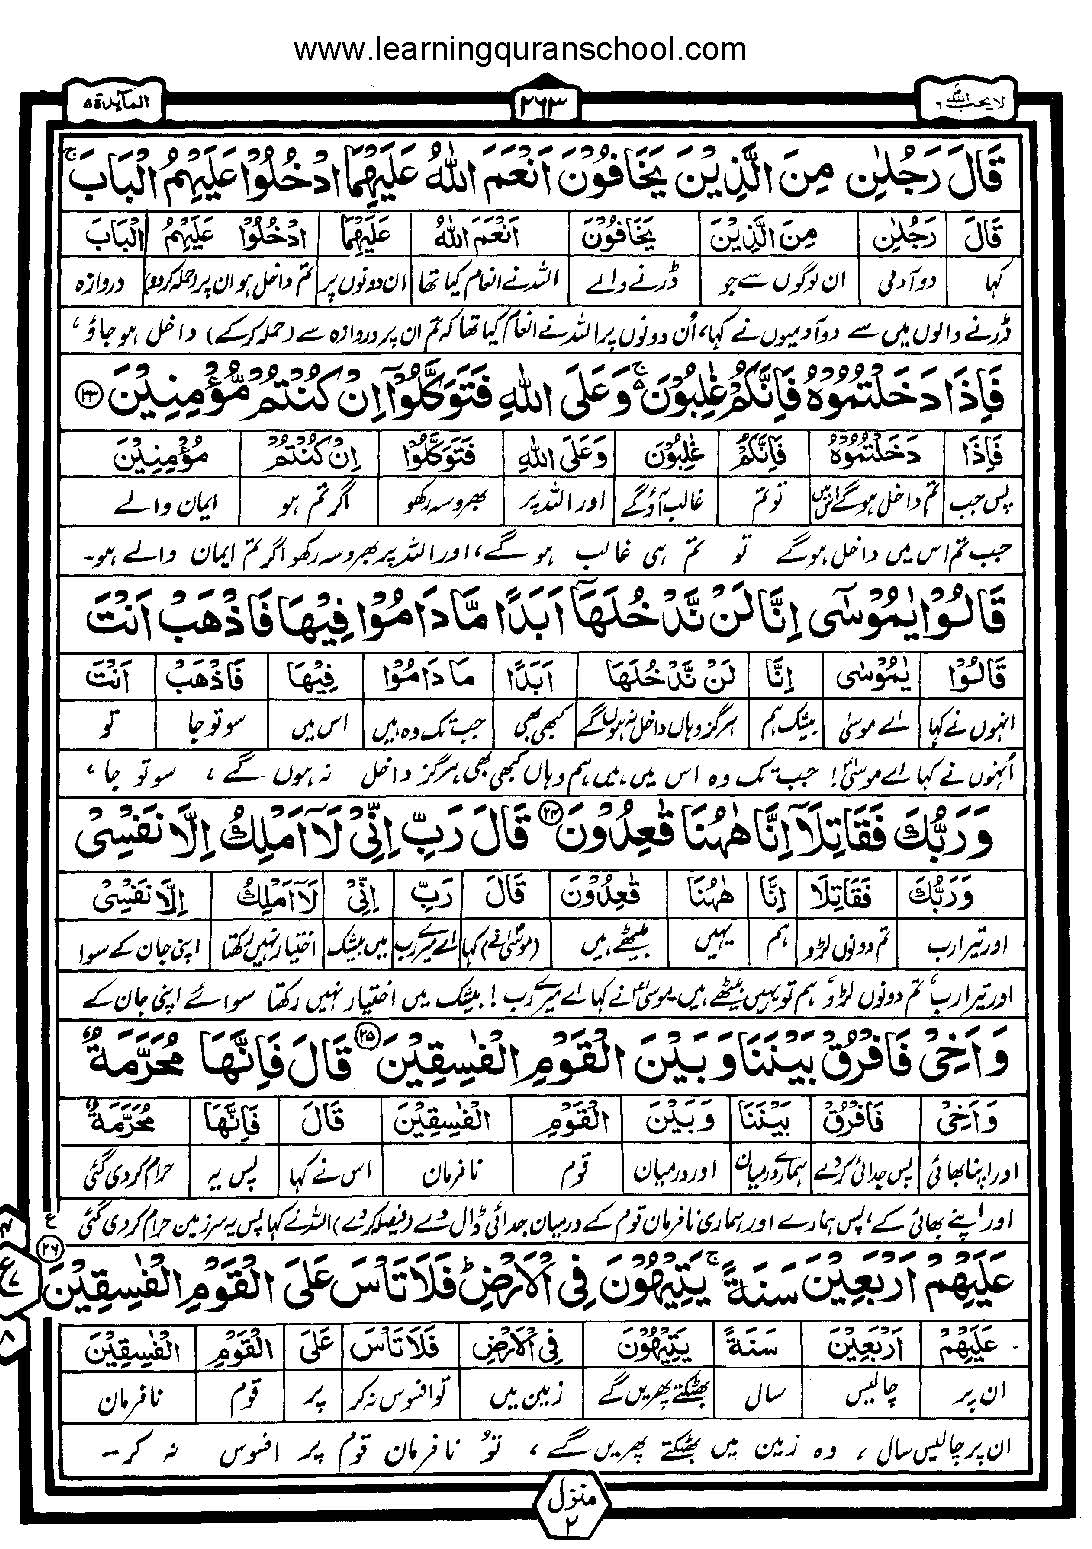 www.learningquranschool.com
لا يحب الله ٦
٢٦٣
المآئدة ٥
قَالَ رَجُلٰنِ مِنَ الَّذِيْنَ يَخَافُوْنَ اَنْعَمَ اللّٰهُ عَلَيْهِمَا ادْخُلُوْا عَلَيْهِمُ الْبَابَ ۚ
قَالَ رَجُلٰنِ مِنَ الَّذِيْنَ يَخَافُوْنَ اَنْعَمَ اللّٰهُ عَلَيْهِمَا ادْخُلُوْا عَلَيْهِمُ الْبَابَ
کہا دو آدمی ان لوگوں سے جو ڈرنے والے اللہ نے انعام کیا تھا ان دونوں پر تم داخل ہو ان پر (حملہ کردو) دروازہ
ڈرنے والوں میں سے دو آدمیوں نے کہا، اُن دونوں پر اللہ نے انعام کیا تھا کہ تم ان پر دروازہ سے (حملہ کرکے) داخل ہو جاؤ،
فَاِذَا دَخَلْتُمُوْهُ فَاِنَّكُمْ غٰلِبُوْنَ ۚ وَعَلَى اللّٰهِ فَتَوَكَّلُوْٓا اِنْ كُنْتُمْ مُّؤْمِنِيْنَ ﴿٢٣﴾
فَاِذَا دَخَلْتُمُوْهُ فَاِنَّكُمْ غٰلِبُوْنَ وَعَلَى اللّٰهِ فَتَوَكَّلُوْٓا اِنْ كُنْتُمْ مُؤْمِنِيْنَ
پس جب تم داخل ہوگے اس میں تو تم غالب آؤ گے اور اللہ پر بھروسہ رکھو اگر تم ہو ایمان والے
جب تم اس میں داخل ہوگے تو تم ہی غالب ہو گے، اور اللہ پر بھروسہ رکھو اگر تم ایمان والے ہو۔
قَالُوْا يٰمُوْسٰٓى اِنَّا لَنْ نَّدْخُلَهَآ اَبَدًا مَّا دَامُوْا فِيْهَا فَاذْهَبْ اَنْتَ
قَالُوْا يٰمُوْسٰٓى اِنَّا لَنْ نَّدْخُلَهَا اَبَدًا مَا دَامُوْا فِيْهَا فَاذْهَبْ اَنْتَ
انہوں نے کہا اے موسیٰ بیشک ہم ہرگز وہاں داخل نہ ہوں گے کبھی بھی جب تک وہ ہیں اس میں سو تو جا تو
اُنہوں نے کہا اے موسیٰؑ! جب تک وہ اس میں ہیں، ہم وہاں کبھی بھی ہرگز داخل نہ ہوں گے، سو تو جا،
وَرَبُّكَ فَقَاتِلَآ اِنَّا هٰهُنَا قٰعِدُوْنَ ﴿٢٤﴾ قَالَ رَبِّ اِنِّيْ لَآ اَمْلِكُ اِلَّا نَفْسِيْ
وَرَبُّكَ فَقَاتِلَا اِنَّا هٰهُنَا قٰعِدُوْنَ قَالَ رَبِّ اِنِّيْ لَآ اَمْلِكُ اِلَّا نَفْسِيْ
اور تیرا رب تم دونوں لڑو ہم یہیں بیٹھے ہیں (موسیٰ نے) کہا اے میرے رب میں بیشک اختیار نہیں رکھتا اپنی جان کے سوا
اور تیرا رب، تم دونوں لڑو، ہم تو یہیں بیٹھے ہیں۔ موسیٰؑ نے کہا اے میرے رب! بیشک میں اختیار نہیں رکھتا سوائے اپنی جان کے
وَاَخِيْ فَافْرُقْ بَيْنَنَا وَبَيْنَ الْقَوْمِ الْفٰسِقِيْنَ ﴿٢٥﴾ قَالَ فَاِنَّهَا مُحَرَّمَةٌ
وَاَخِيْ فَافْرُقْ بَيْنَنَا وَبَيْنَ الْقَوْمِ الْفٰسِقِيْنَ قَالَ فَاِنَّهَا مُحَرَّمَةٌ
اور اپنا بھائی پس جدائی کر دے ہمارے درمیان اور درمیان قوم نافرمان اس نے کہا پس یہ حرام کردی گئی
اور اپنے بھائی کے، پس ہمارے اور ہماری نافرمان قوم کے درمیان جدائی ڈال دے (فیصلہ کر دے) اللہ نے کہا پس یہ سرزمین حرام کردی گئی
عَلَيْهِمْ اَرْبَعِيْنَ سَنَةً ۚ يَتِيْهُوْنَ فِي الْاَرْضِ ؕ فَلَا تَاْسَ عَلَى الْقَوْمِ الْفٰسِقِيْنَ ﴿٢٦﴾ ع
عَلَيْهِمْ اَرْبَعِيْنَ سَنَةً يَتِيْهُوْنَ فِي الْاَرْضِ فَلَا تَاْسَ عَلَى الْقَوْمِ الْفٰسِقِيْنَ
ان پر چالیس سال بھٹکتے پھریں گے زمین میں تو افسوس نہ کر پر قوم نافرمان
ان پر چالیس سال، وہ زمین میں بھٹکتے پھریں گے، تُو نافرمان قوم پر افسوس نہ کر۔
منزل ٢